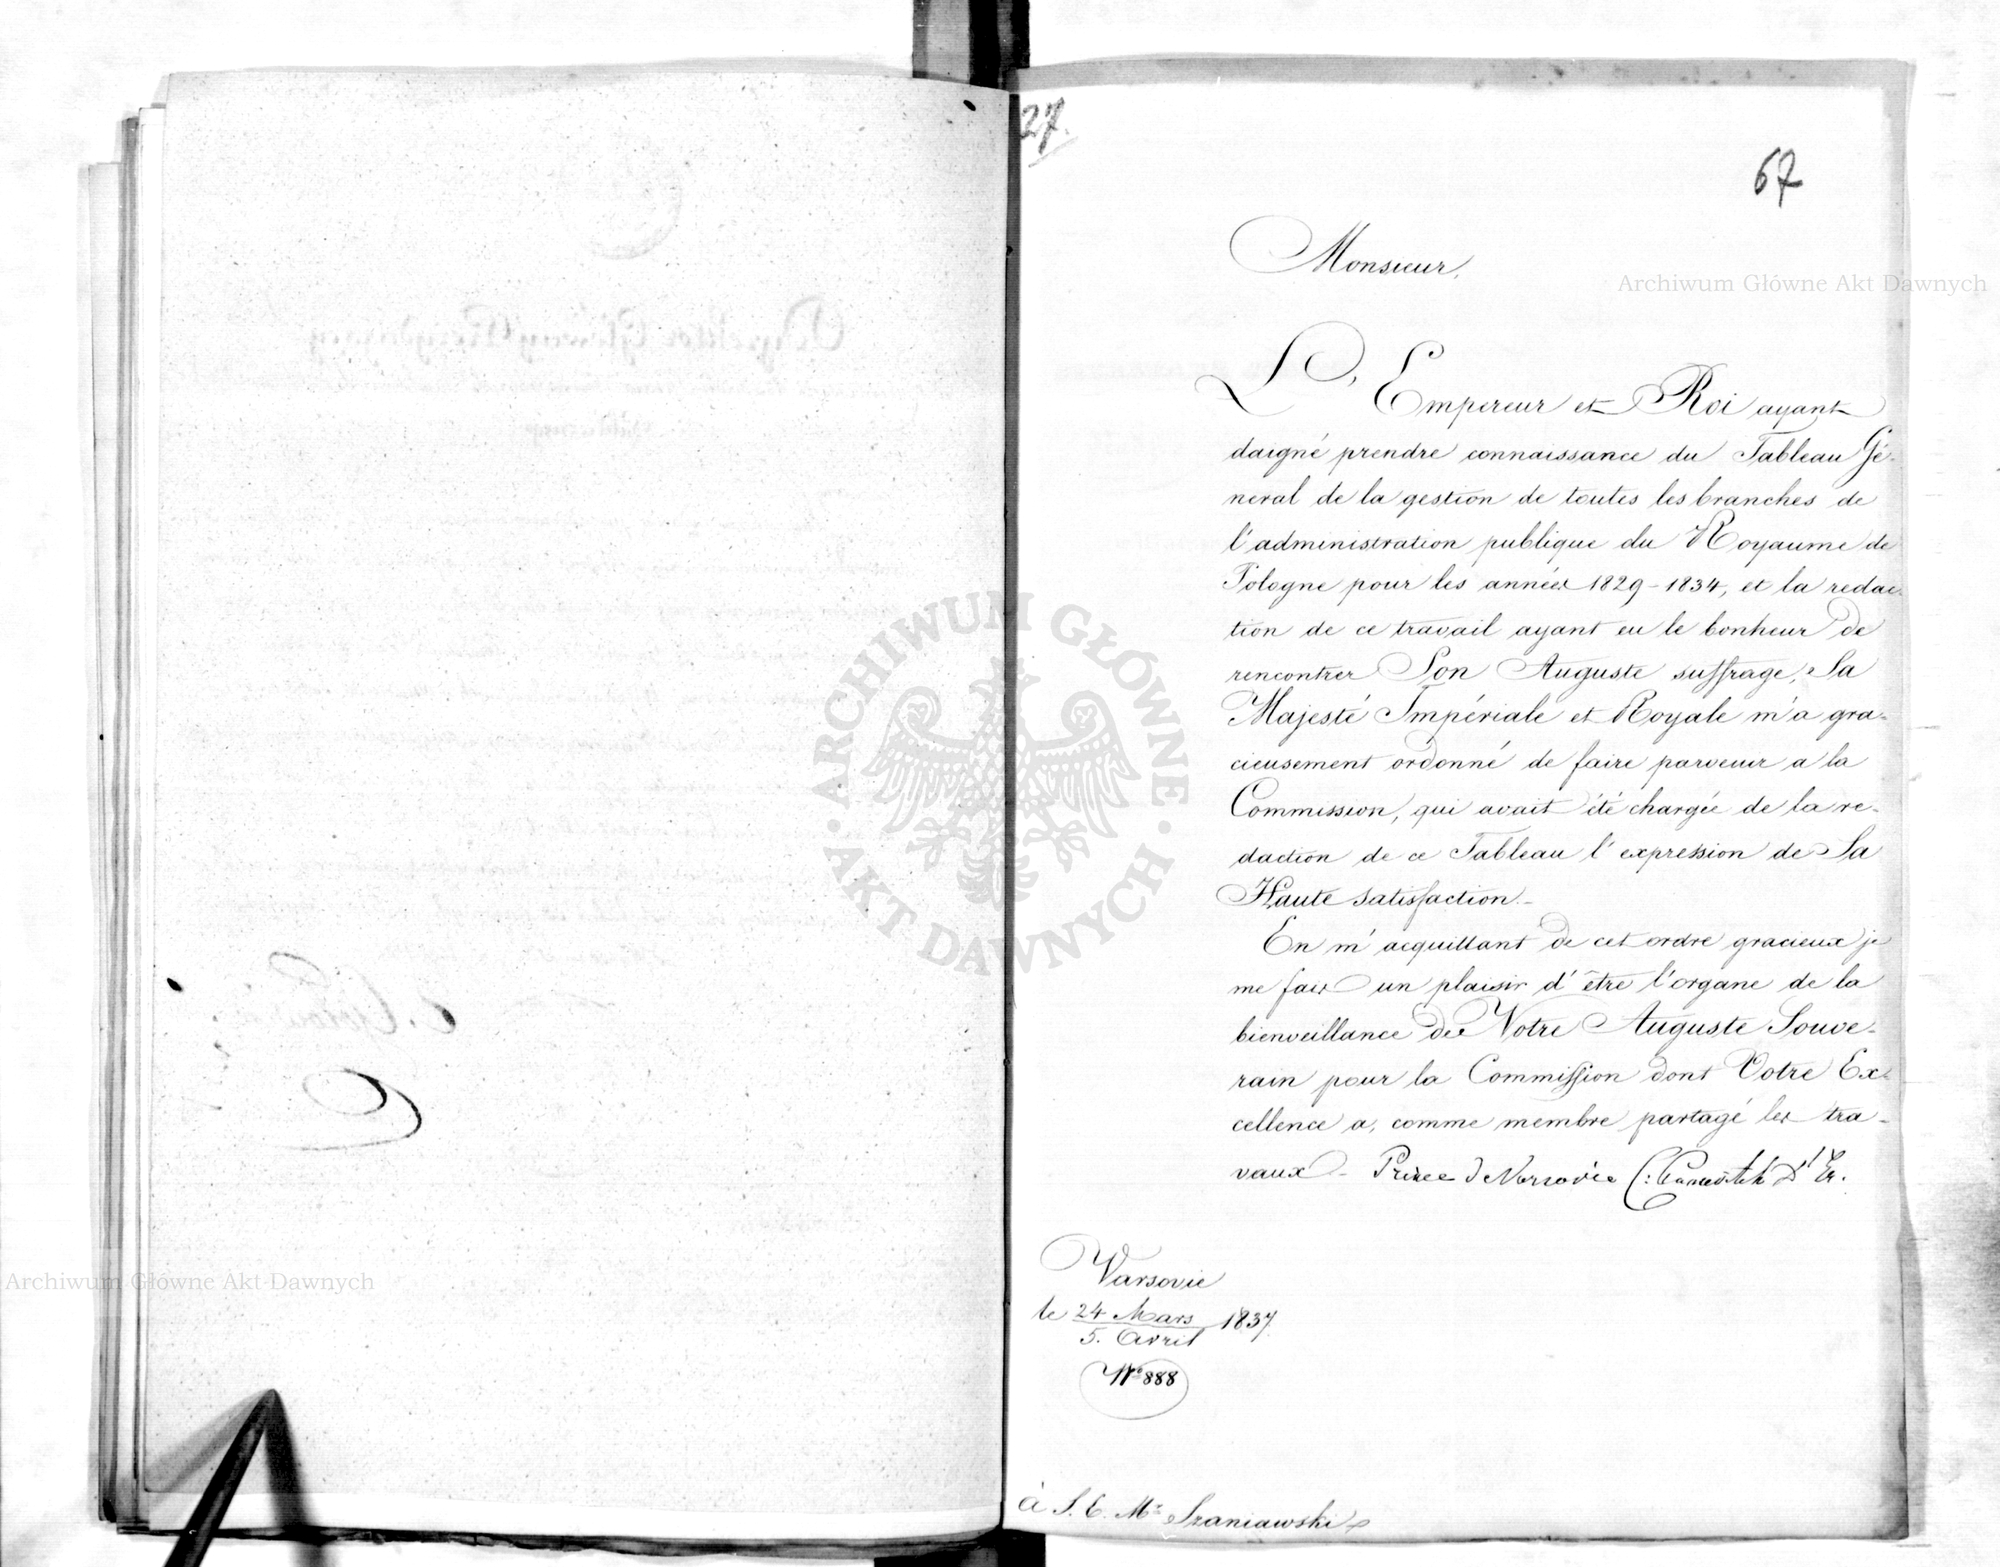 27.
67
Monsieur,
L'Empereur et Roi ayant
daigné prendre connaissance du Tableau Gé-
neral de la gestion de toutes les branches de
l'administration publique du Royaume de
Pologne pour les années 1829-1834, et la redac-
tion de ce travail ayant eu le bonheur de
rencontrer Son Auguste suffrage, Sa
Majesté Impériale et Royale m'a gra-
cieusement ordonné de faire parvenir a la
Commission, qui avait été chargée de la re-
daction de ce Tableau l'expression de Sa
Haute satisfaction.-
En m'acquittant de cet ordre gracieux je
me fais un plaisir d'être l'organe de la
bienveillance de Notre Auguste Souve-
rain pour la Commission dont Votre Ex-
cellence a, comme membre partagé les tra-
vaux - Prince de Varsovie
Varsovie
le 24 Mars / 5. Avril 1837
Nº 888
à S. E. Mr Szaniawski
Archiwum Główne Akt Dawnych
Archiwum Główne Akt Dawnych
ARCHIWUM GŁÓWNE
AKT DAWNYCH